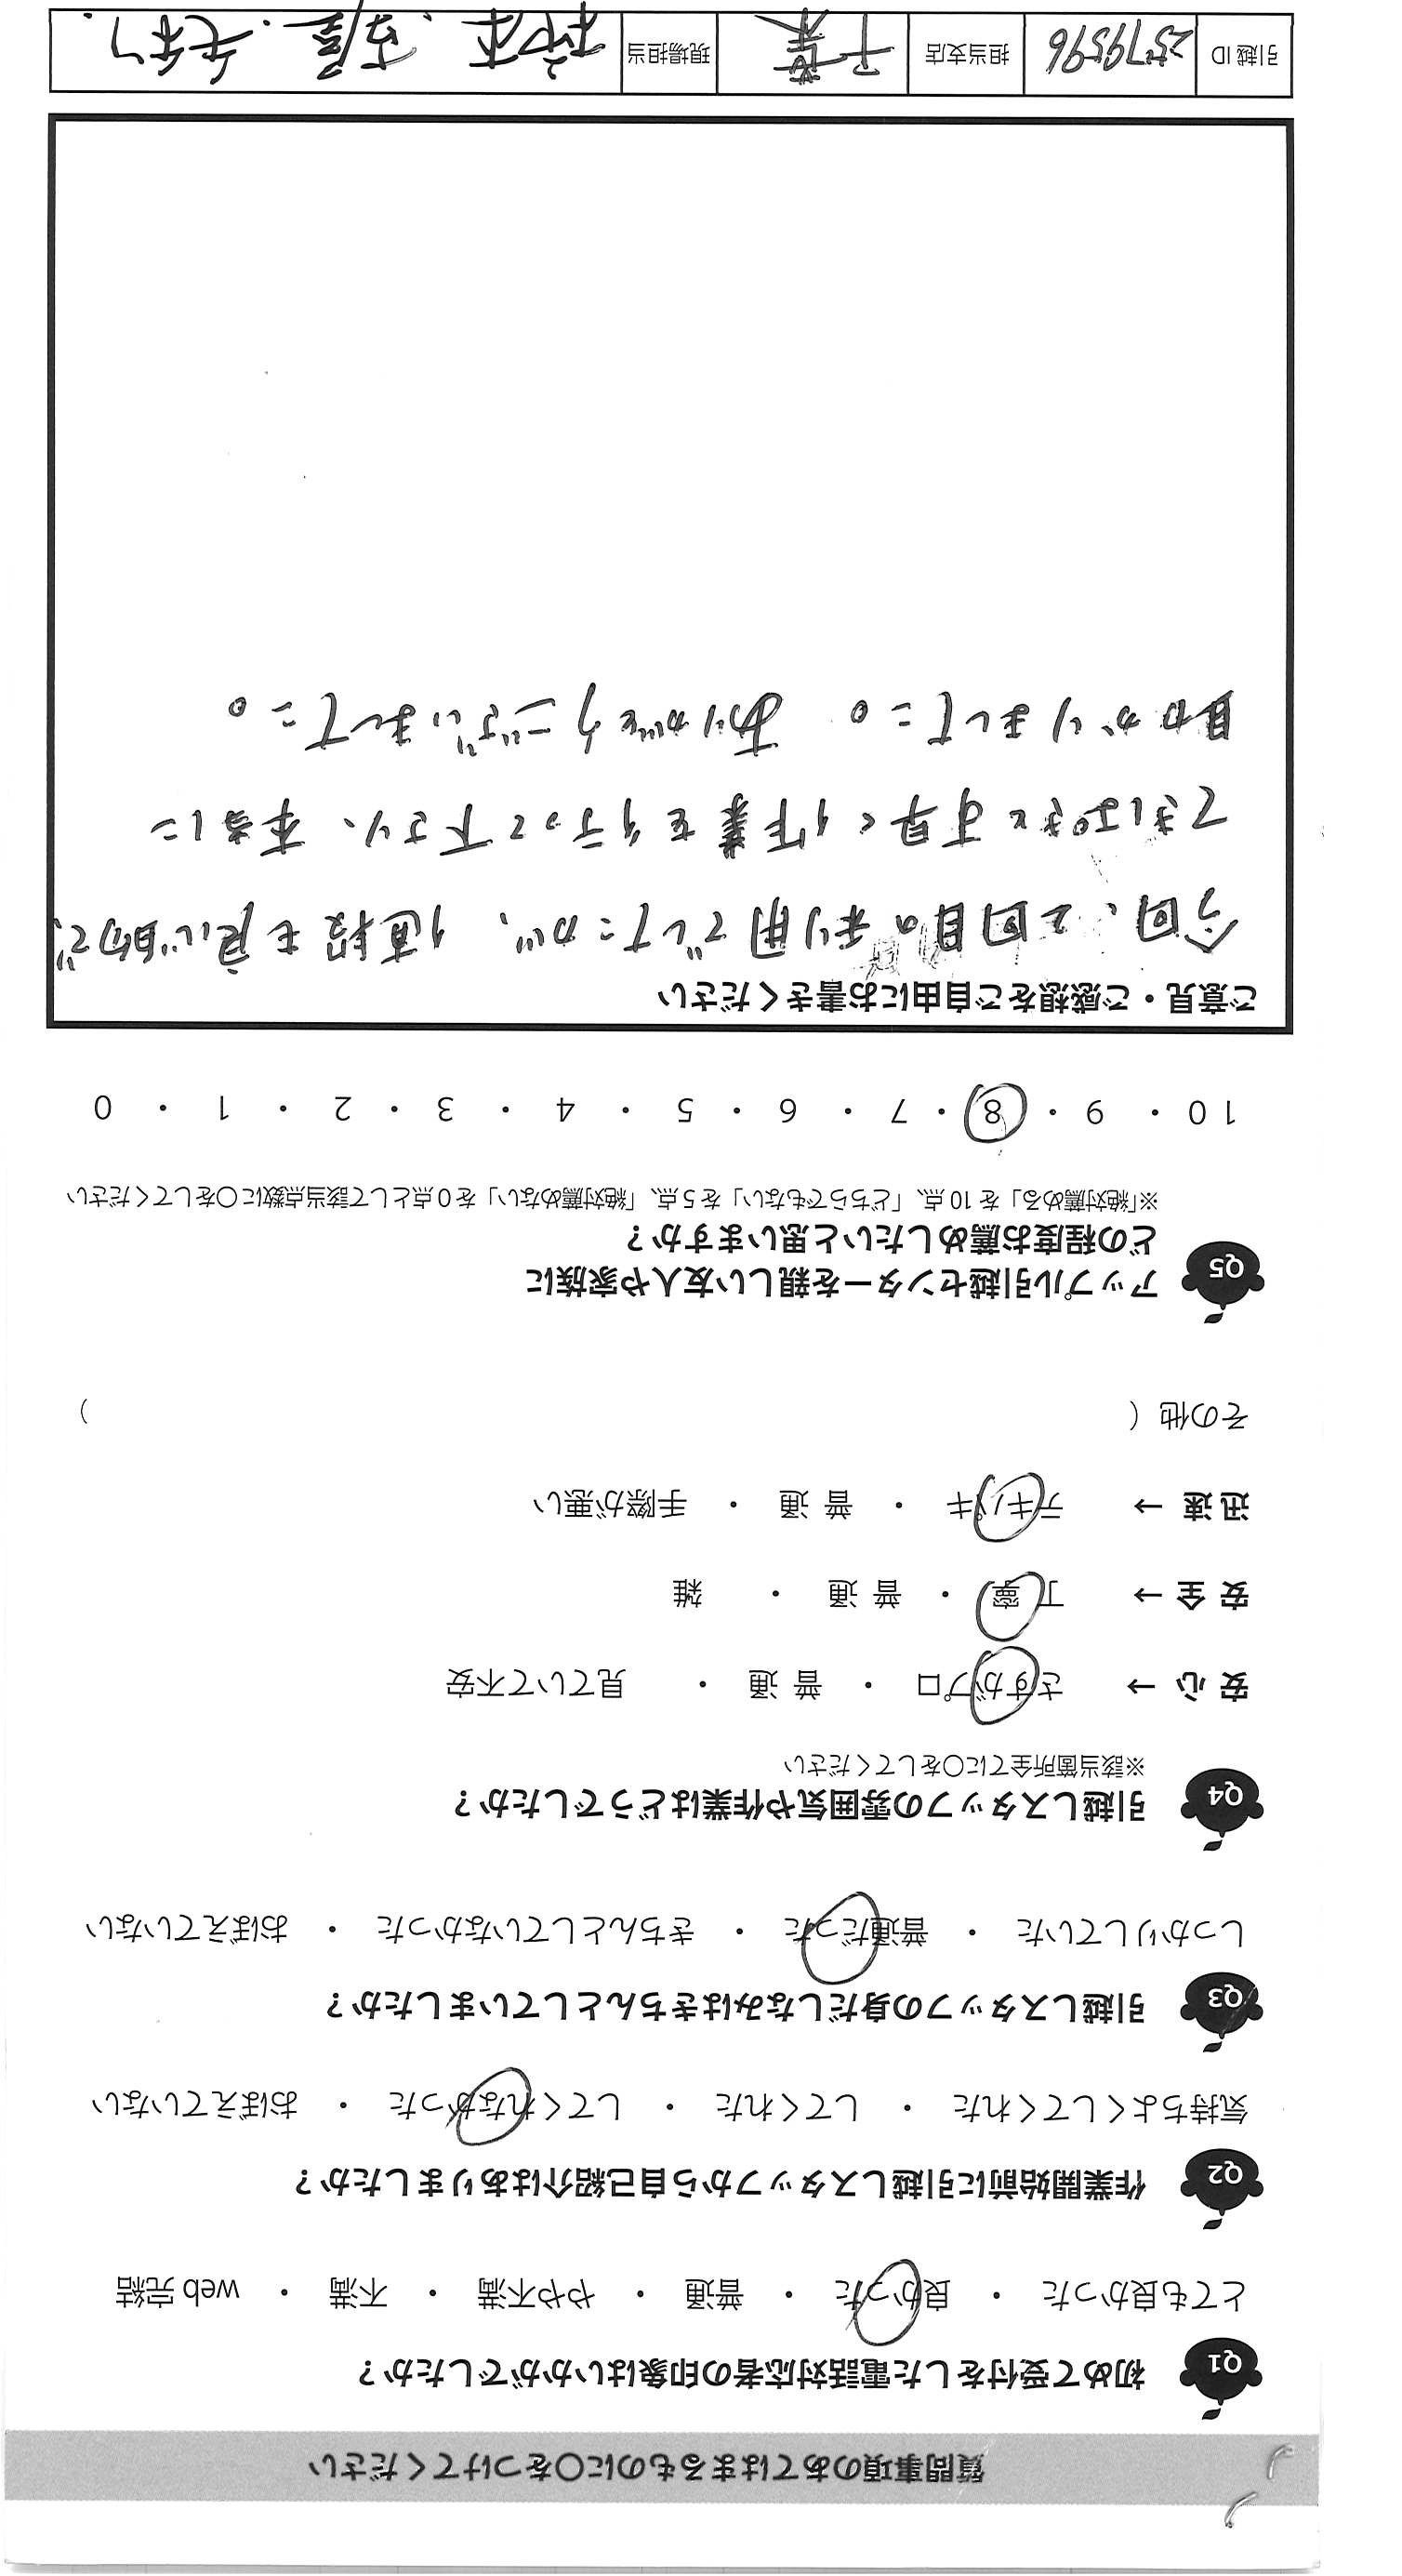 質問事項のあてはまるものに○をつけてください
Q1 初めて受付をした電話対応者の印象はいかがでしたか?
とても良かった ・ 良かった ・ 普通 ・ やや不満 ・ 不満 ・ web 完結
Q2 作業開始前に引越しスタッフから自己紹介はありましたか?
気持ちよくしてくれた ・ してくれた ・ してくれなかった ・ おぼえていない
Q3 引越しスタッフの身だしなみはきちんとしていましたか?
しっかりしていた ・ 普通だった ・ きちんとしていなかった ・ おぼえていない
Q4 引越しスタッフの雰囲気や作業はどうでしたか?
※該当箇所全てに○をしてください
安心 → さすがプロ ・ 普通 ・ 見ていて不安
安全 → 丁寧 ・ 普通 ・ 雑
迅速 → テキパキ ・ 普通 ・ 手際が悪い
その他 ( )
Q5 アップル引越センターを親しい友人や家族に
どの程度お薦めしたいと思いますか?
※「絶対薦める」を10点、「どちらでもない」を5点、「絶対薦めない」を0点として該当点数に○をしてください
10 ・ 9 ・ 8 ・ 7 ・ 6 ・ 5 ・ 4 ・ 3 ・ 2 ・ 1 ・ 0
ご意見・ご感想をご自由にお書きください
今回、2回目の利用でしたが、値段も良心的で、
てきぱきと手早く作業を行って下さり、本当に
助かりました。ありがとうございました。
引越ID 2579596 担当支店 千葉 現場担当